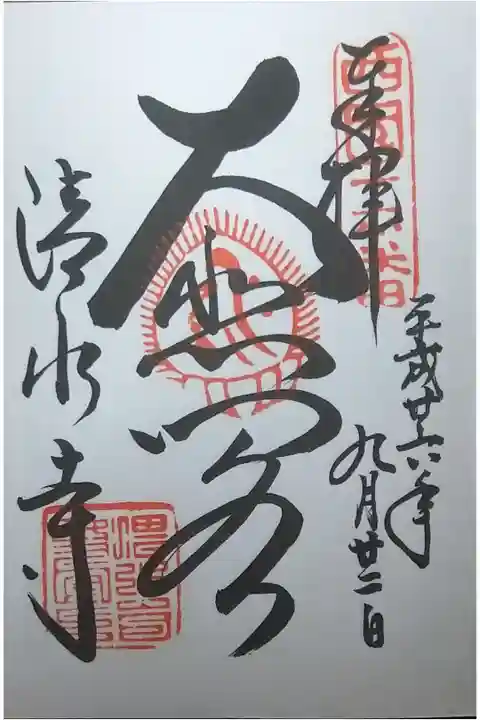 奉拝
平成廿六年
九月廿二日
大悲閣
清水寺